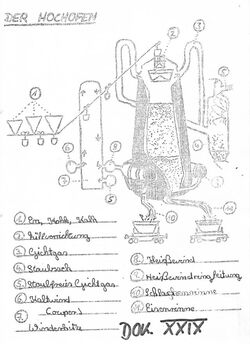 DER HOCHOFEN
1 2 3
4
8
7
6 5
10 11
1 Erz, Koks, Kalk
2 Füllvorrichtung
3 Gichtgas
4 Staubsack
5 Staubfreies Gichtgas
6 Kaltwind
7 Cowper)
Winderhitzer
8 Heißwind
9 Heißwindringleitung
10 Schlackenrinne
11 Eisenrinne
DOK. XXIX